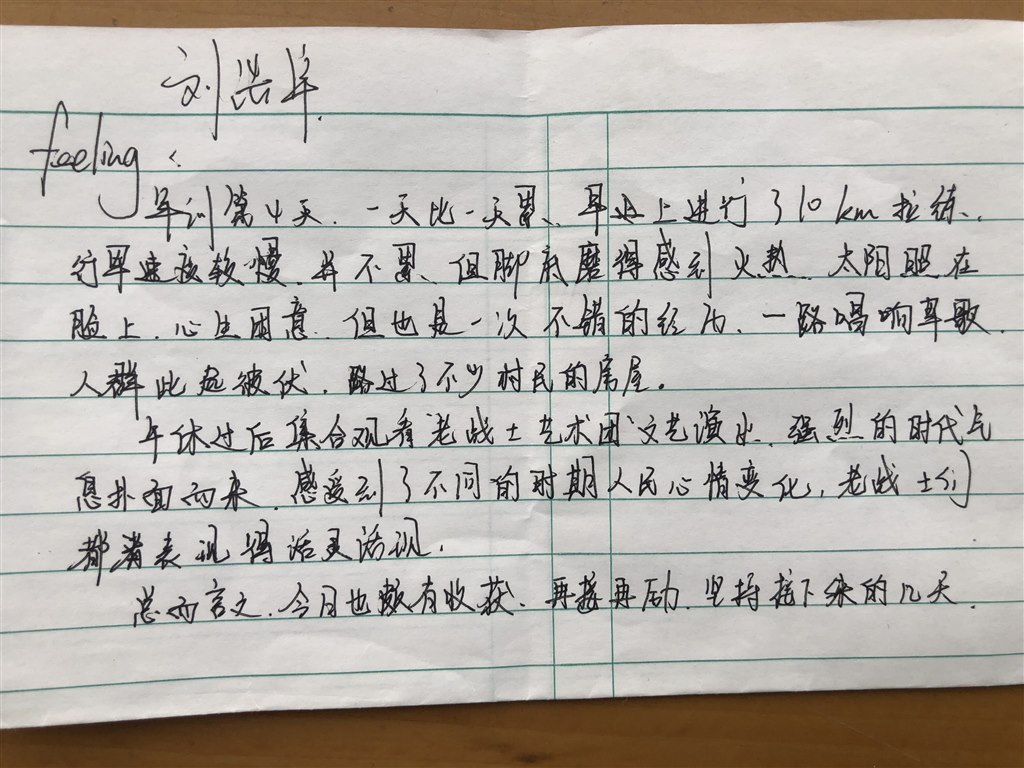 刘浩年
feeling:
军训第4天,一天比一天累、早上进行了10km拉练、
行军速度较慢,并不累、但脚底磨得感到火热,太阳照在
脸上,心生困意,但也是一次不错的经历、一路唱响军歌,
人群此起彼伏,路过了不少村民的房屋。
午休过后集合观看"老战士艺术团"文艺演出,强烈的时代气
息扑面而来,感受到了不同的时期人民心情变化,老战士们
都表现得活灵活现,
总而言之,今日也颇有收获、再接再励,坚持接下来的几天,